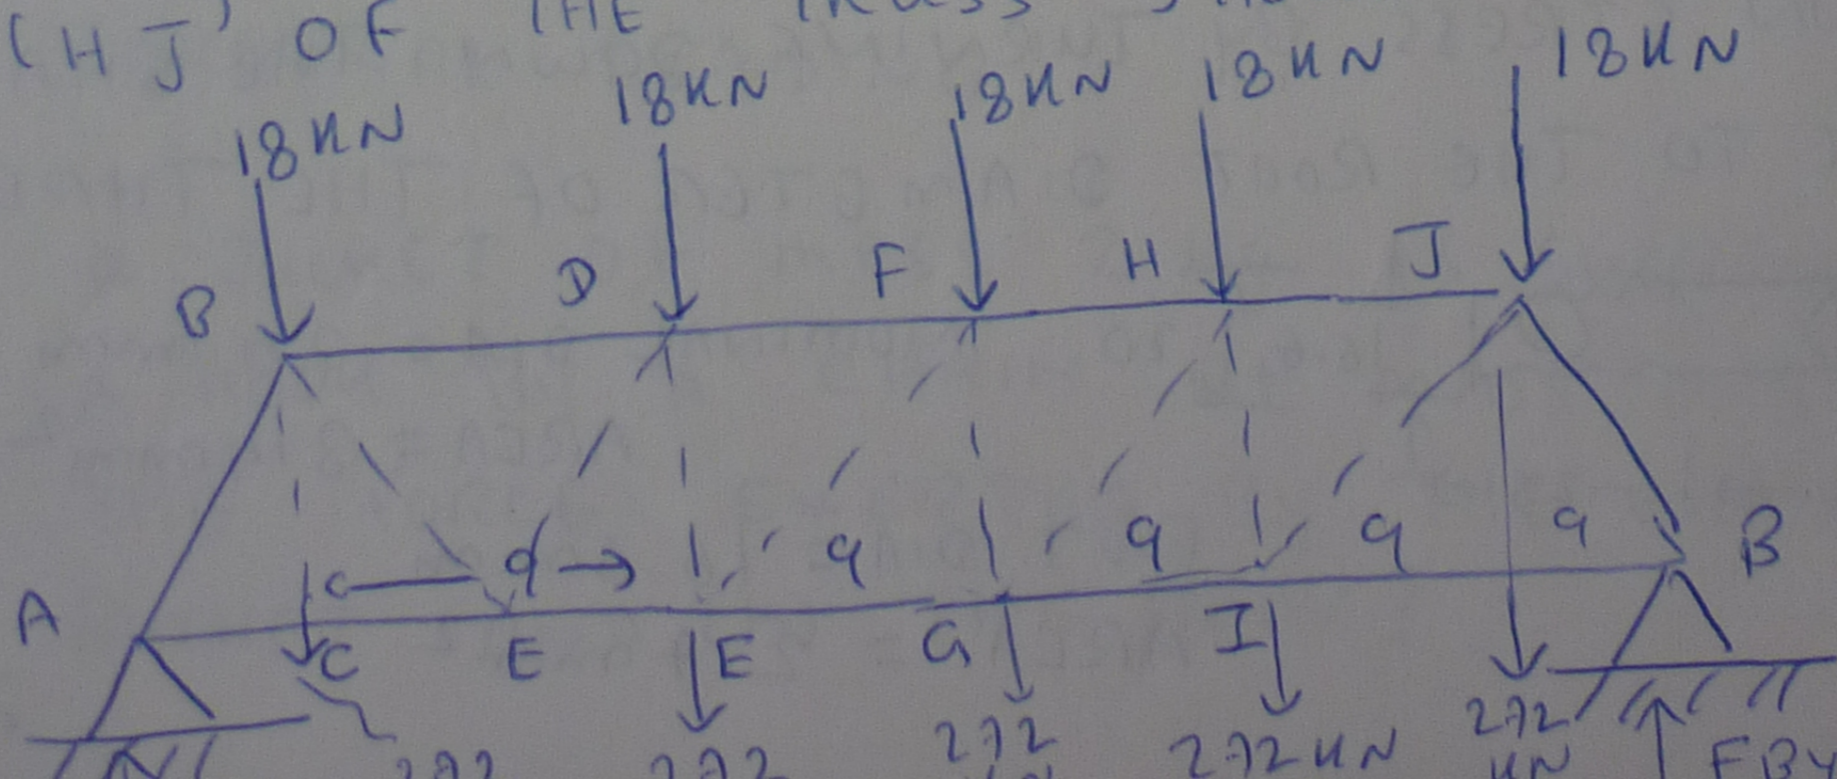 (HJ) OF THE TRUSS
18KN 18KN 18KN 18KN 18KN
B D F H J
9 9 9 9 9
A C E E G I B
272 272 272 KN 272KN 272 KN FBY